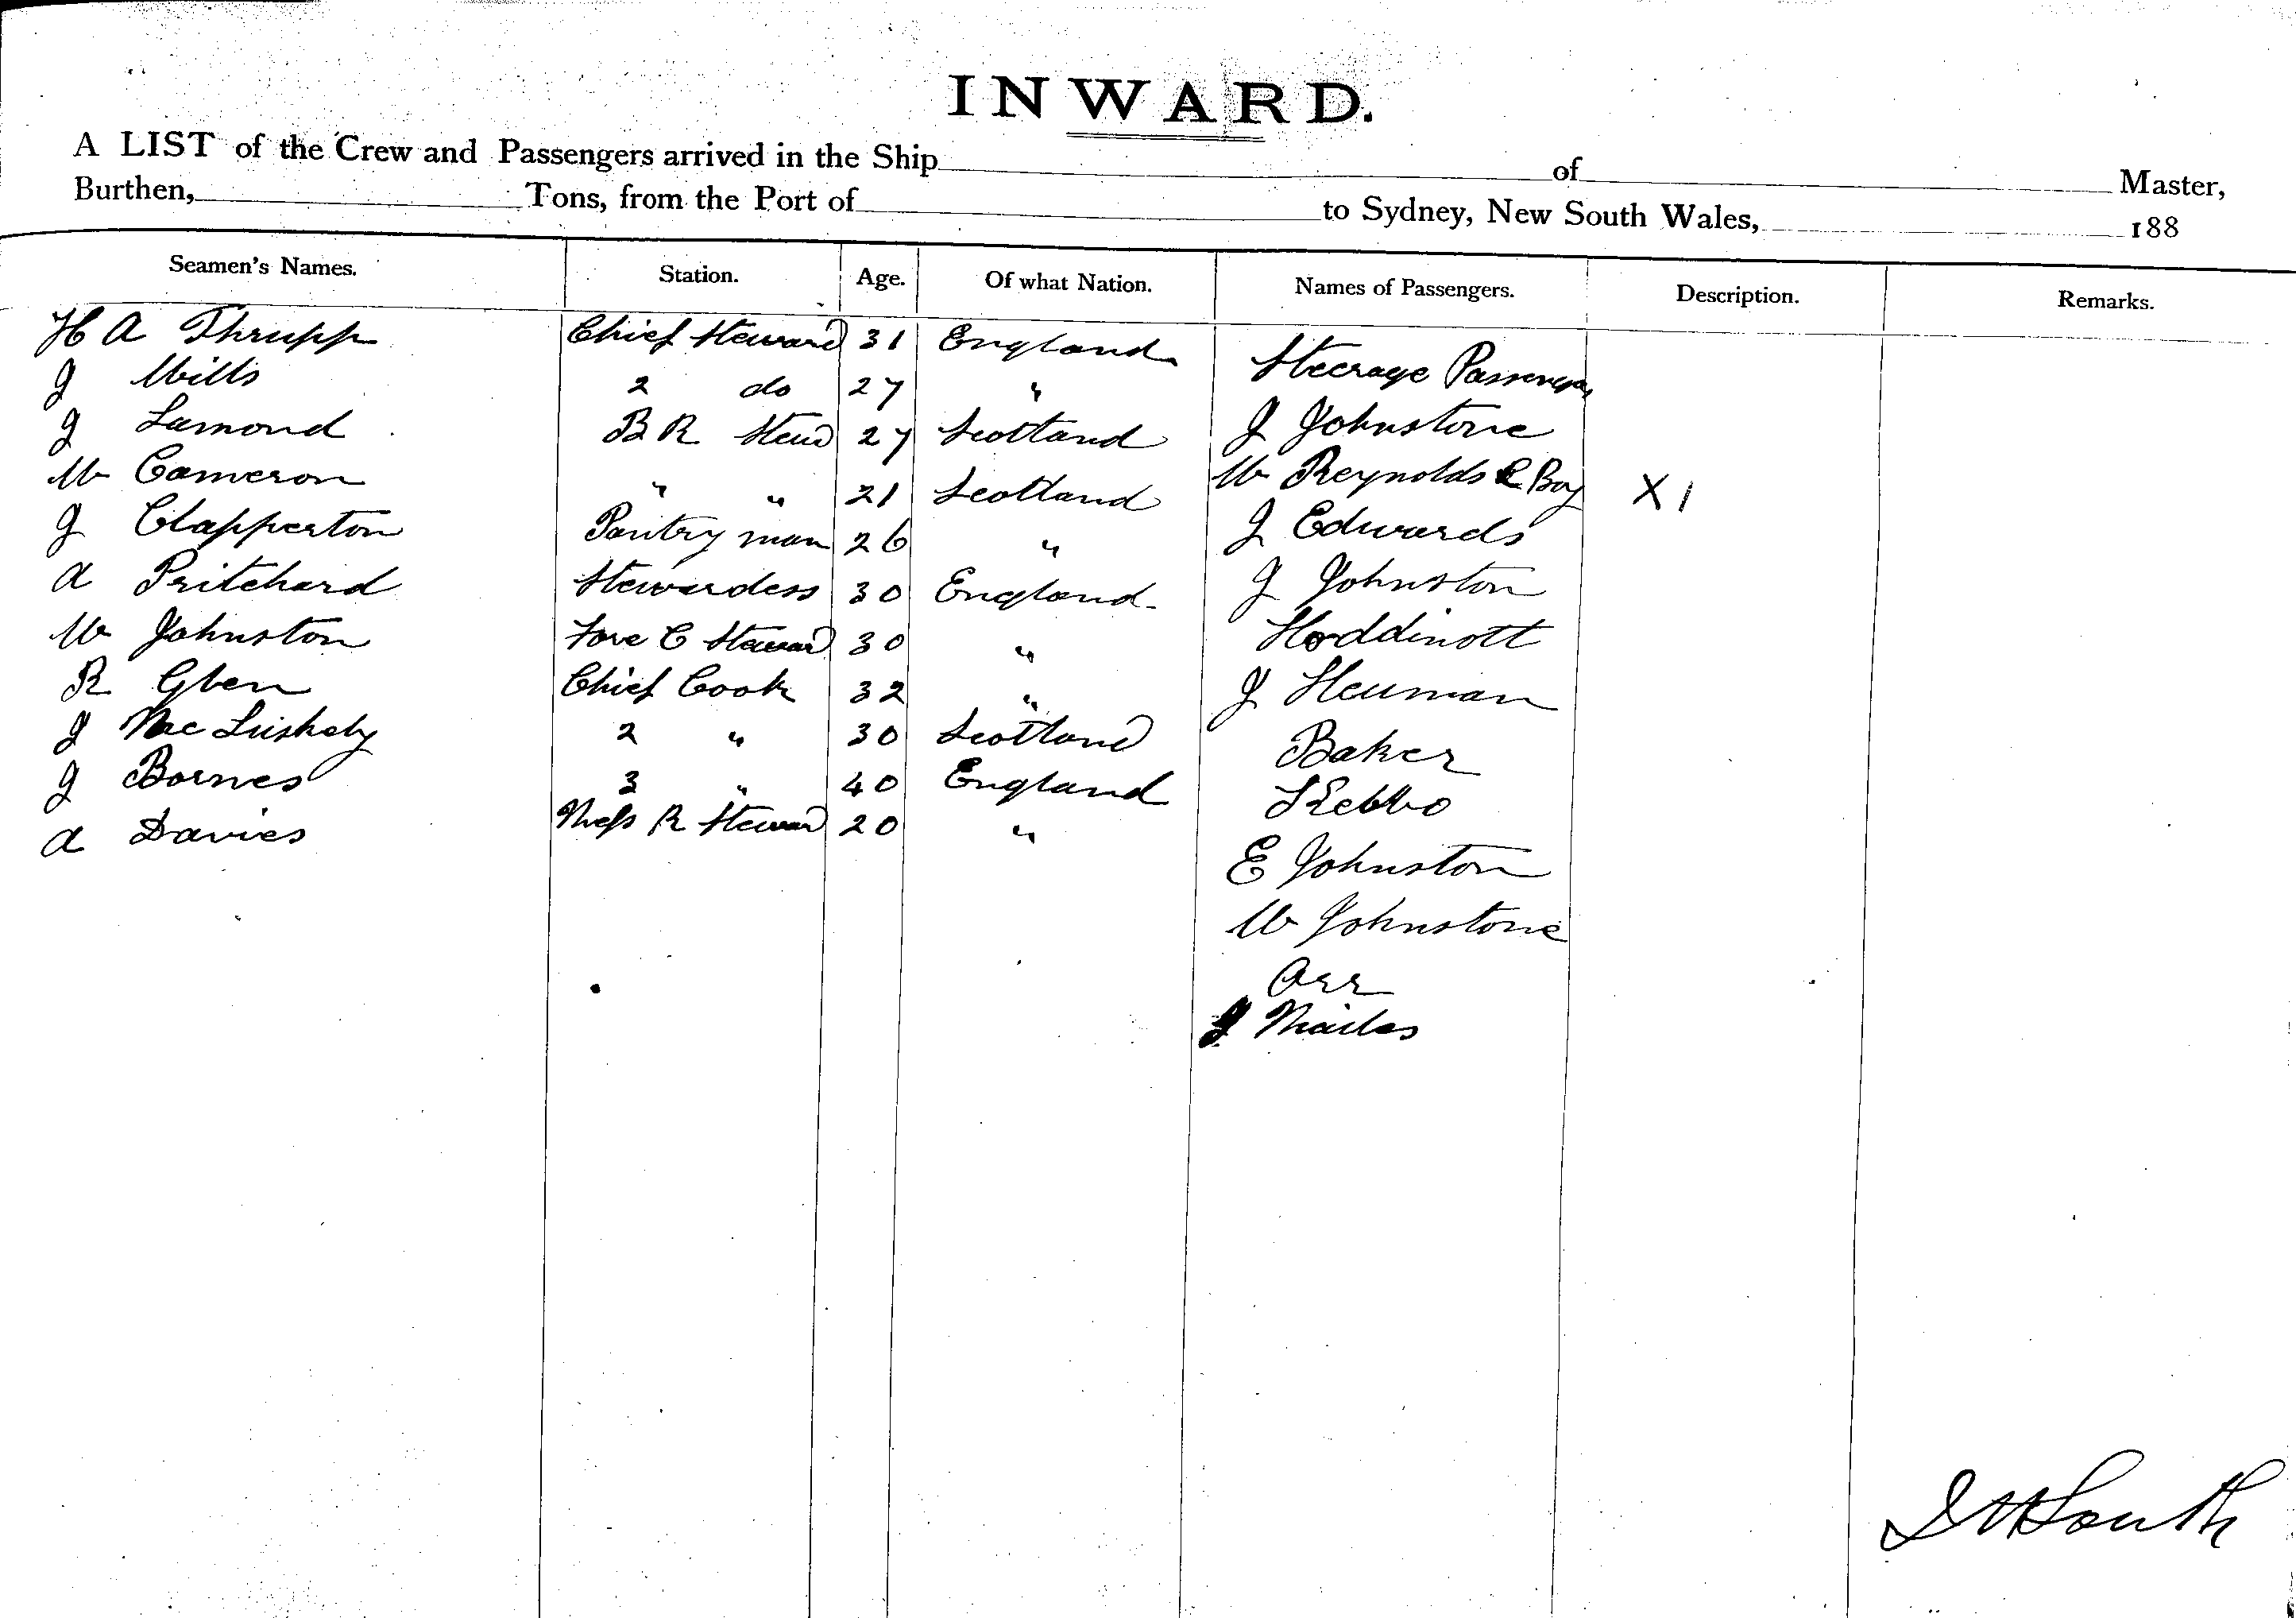 INWARD.
A LIST of the Crew and Passengers arrived in the Ship of Master,
Burthen, Tons, from the Port of to Sydney, New South Wales, 188
Seamen's Names. Station. Age. Of what Nation. Names of Passengers. Description. Remarks.
H A Thrupp Chief Steward 31 England Steerage Passengers
J Mills 2 do 27 " J Johnstone
J Lamond B R Stewd 27 Scotland W Reynolds & Boy X 1
W Cameron " " 21 Scotland J Edwards
J Clapperton Pantry man 26 " J Johnston
A Pritchard Stewardess 30 England Hoddinott
W Johnston Fore C Steward 30 " J Heuman
R Glen Chief Cook 32 " Baker
J 2 " 30 Scotland
J Barnes 3 " 40 England E Johnston
A Davies Mess R Steward 20 " W Johnstone
Orr
J